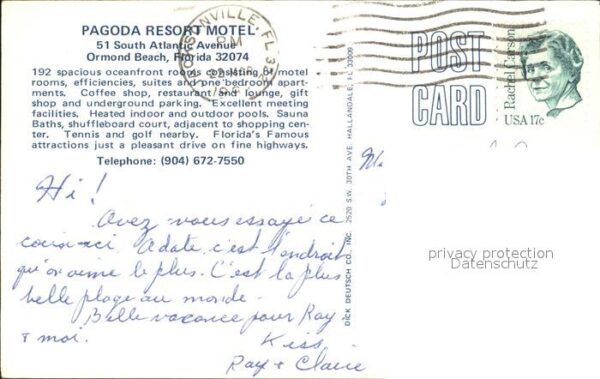 PAGODA RESORT MOTEL
51 South Atlantic Avenue
Ormond Beach, Florida 32074
192 spacious oceanfront rooms consisting of motel
rooms, efficiencies, suites and one bedroom apart-
ments. Coffee shop, restaurant and lounge, gift
shop and underground parking. Excellent meeting
facilities. Heated indoor and outdoor pools. Sauna
Baths, shuffleboard court, adjacent to shopping cen-
ter. Tennis and golf nearby. Florida's Famous
attractions just a pleasant drive on fine highways.
Telephone: (904) 672-7550
Hi!
Avez vous essayé ce
coin-ci. A date c'est l'endroit
qu'on aime le plus. C'est la plus
belle plage au monde.
Belle vacance pour Ray
& moi.
Kiss
Ray + Claire
DICK DEUTSCH CO., INC. 2520 S.W. 30TH AVE HALLANDALE, FL 33009
JACKSONVILLE, FL
PM
POST
CARD
Rachel Carson
USA 17c
privacy protection
Datenschutz